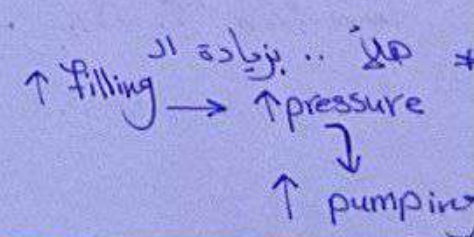 * هلأ .. بزيادة الـ
↑ filling → ↑ pressure
↑ pumping